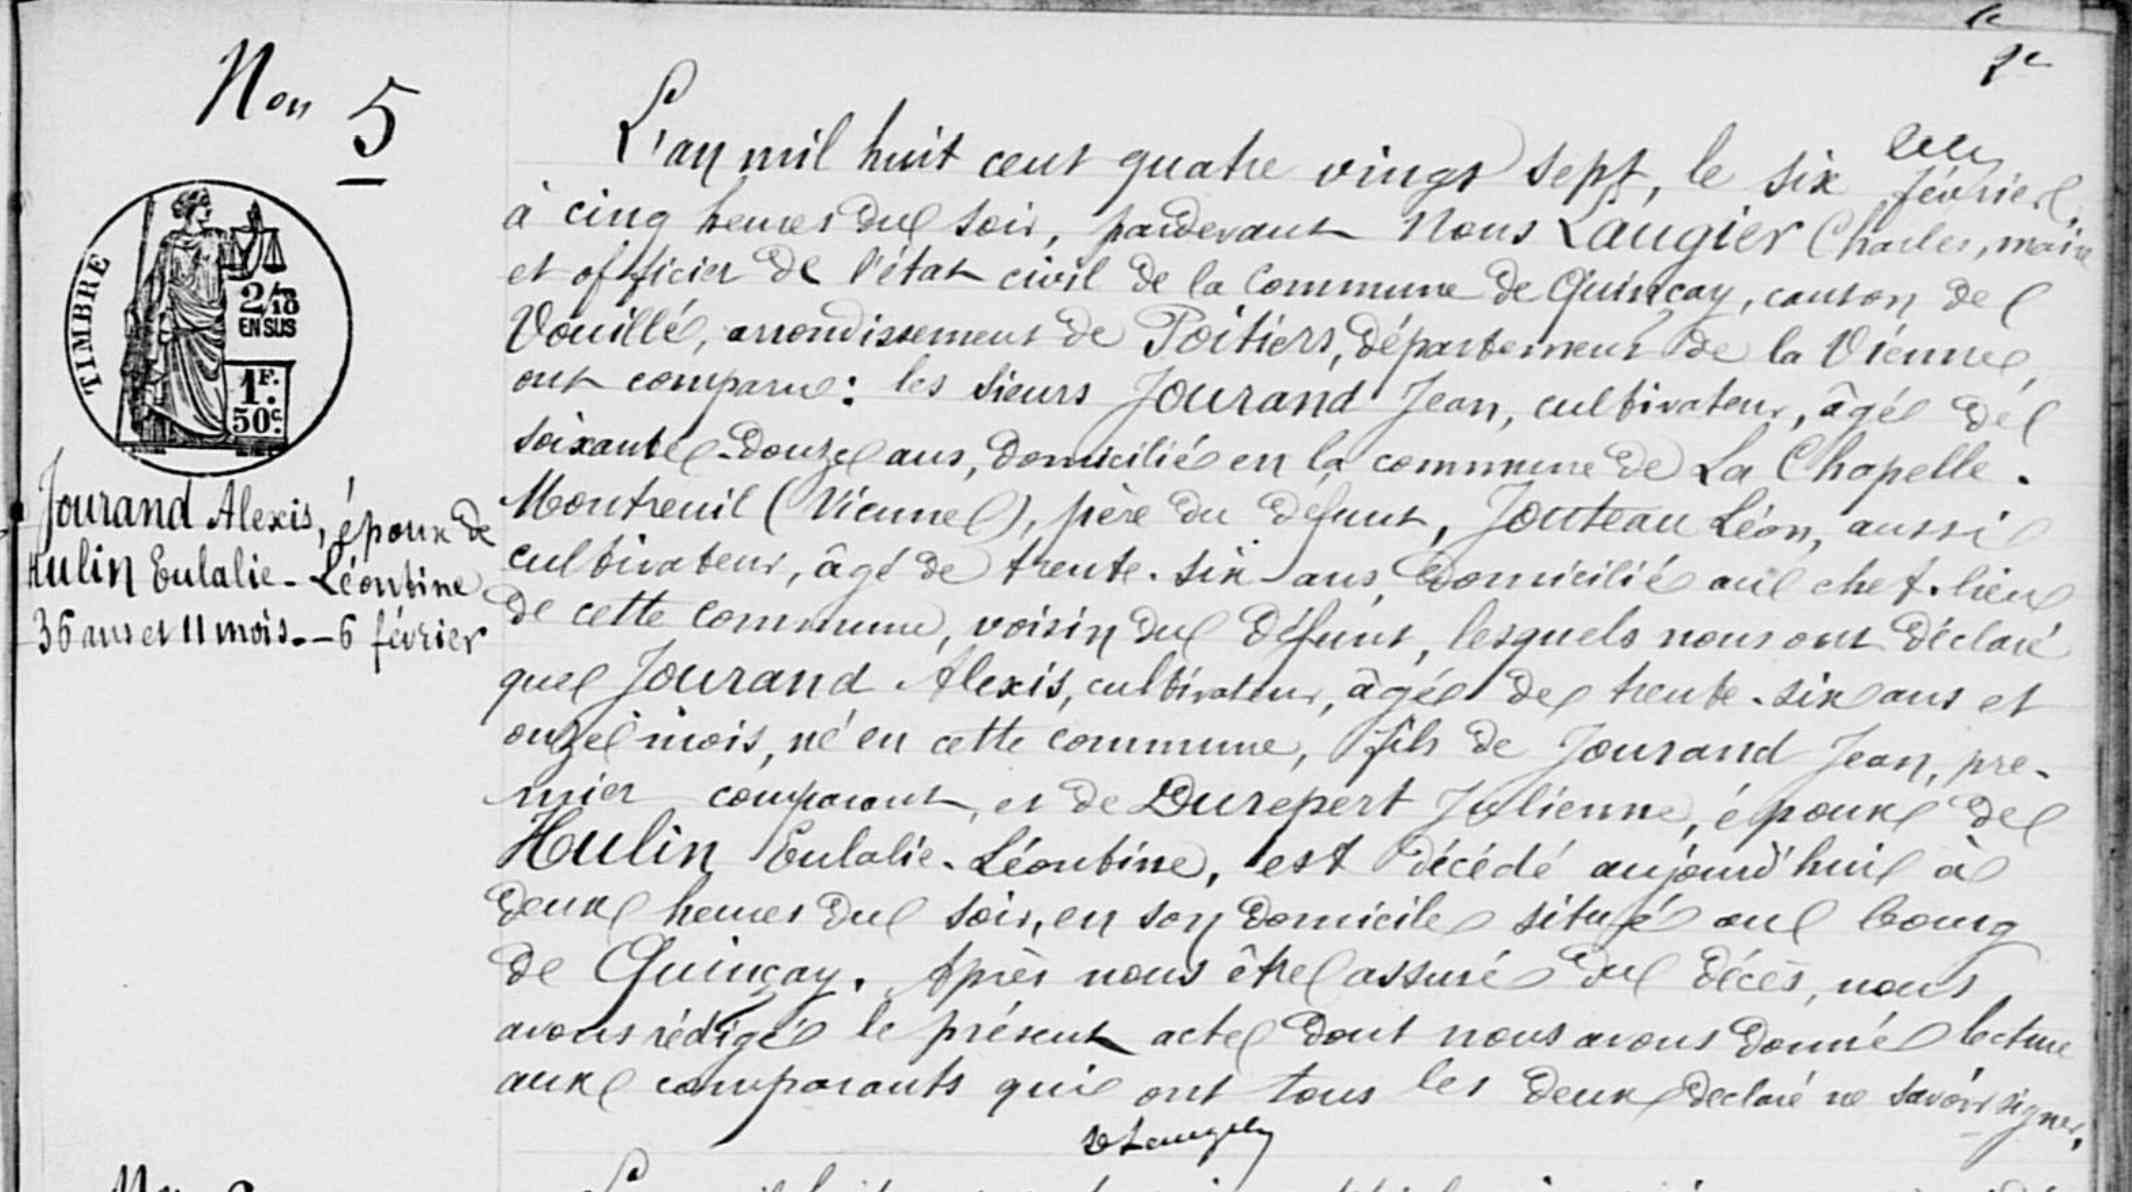 Non 5
TIMBRE
2/10
EN SUS
1F.
50c.
Jourand Alexis, époux de
Hulin Eulalie-Léontine
36 ans et 11 mois. — 6 février
L'an mil huit cent quatre vingt sept, le six février,
à cinq heures du soir, pardevant Nous Laugier Charles, maire
et officier de l'état civil de la Commune de Quinçay, canton de
Vouillé, arrondissement de Poitiers, département de la Vienne,
ont comparu : les sieurs Jourand Jean, cultivateur, âgé de
soixante-douze ans, domicilié en la commune de La Chapelle-
Montreuil (Vienne), père du défunt, Jouteau Léon, aussi
cultivateur, âgé de trente-six ans, domicilié au chef-lieu
de cette commune, voisin du défunt, lesquels nous ont déclaré
que Jourand Alexis, cultivateur, âgé de trente-six ans et
onze mois, né en cette commune, fils de Jourand Jean, pre-
mier comparant, et de Durepert Julienne, époux de
Hulin Eulalie-Léontine, est décédé aujourd'hui à
deux heures du soir, en son domicile situé au bourg
de Quinçay. Après nous être assuré du décès, nous
avons rédigé le présent acte dont nous avons donné lecture
aux comparants qui ont tous les deux déclaré ne savoir signer.